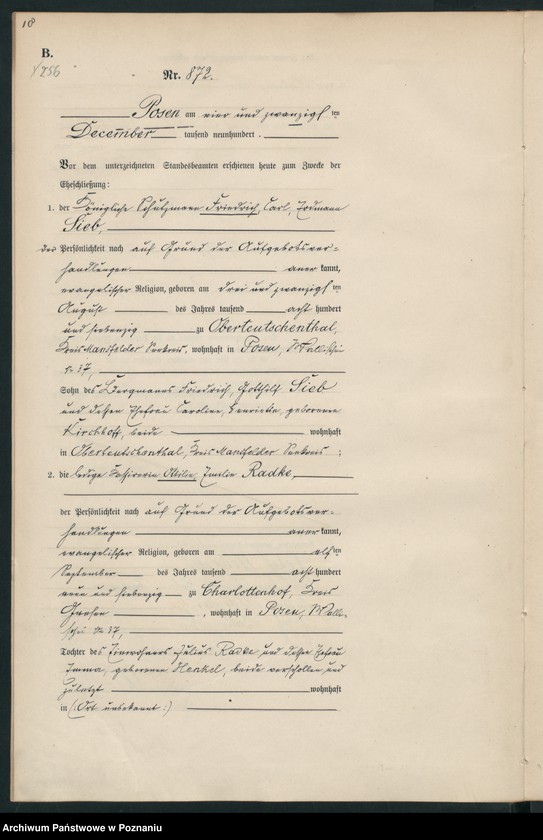 18
B.
Nr. 872.
Posen am vier und zwanzigsten
December tausend neunhundert.
Vor dem unterzeichneten Standesbeamten erschienen heute zum Zwecke der
Eheschließung:
1. der Königliche Schutzmann Friedrich, Carl, Erdmann
Sieb,
der Persönlichkeit nach auf Grund der Aufgebotsver-
handlungen anerkannt,
evangelischer Religion, geboren am drei und zwanzigsten
August des Jahres tausend acht hundert
und siebenzig zu Oberteutschenthal,
Kreis Mansfelder Seekreis, wohnhaft in Posen, Wallischei
No 37,
Sohn des Bergmanns Friedrich, Gotthilf Sieb
und dessen Ehefrau Caroline, Henriette, geborenen
Kirchhoff, beide wohnhaft
in Oberteutschenthal, Kreis Mansfelder Seekreis;
2. die ledige Kassirerin Ottilie, Emilie Radke,
der Persönlichkeit nach auf Grund der Aufgebotsver-
handlungen anerkannt,
evangelischer Religion, geboren am elften
September des Jahres tausend acht hundert
neun und siebenzig zu Charlottenhof, Kreis
Gnesen, wohnhaft in Posen, Walli-
schei No 37,
Tochter des Einwohners Julius Radke, und dessen Ehefrau
Emma, geborenen Henkel, beide verschollen und
zuletzt wohnhaft
in (: Ort unbekannt :)
Archiwum Państwowe w Poznaniu